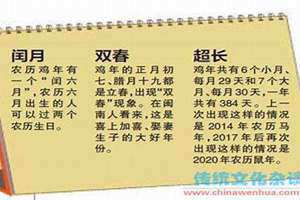 闰月
农历鸡年有
一个“闰六
月”，农历六
月出生的人
可以过两个
农历生日。
双春
鸡年的正月初
七、腊月十九都
是立春，出现“双
春”现象。在闽
南人看来，这是
喜上加喜、娶妻
生子的大好年
份。
超长
鸡年共有6个小月、
每月29天和7个大
月、每月30天，一年
共有384天。上一
次出现这样的情况
是2014年农历马
年，2017年后再次
出现这样的情况是
2020年农历鼠年。
传统文化杂谈
www.chinawenhua.com